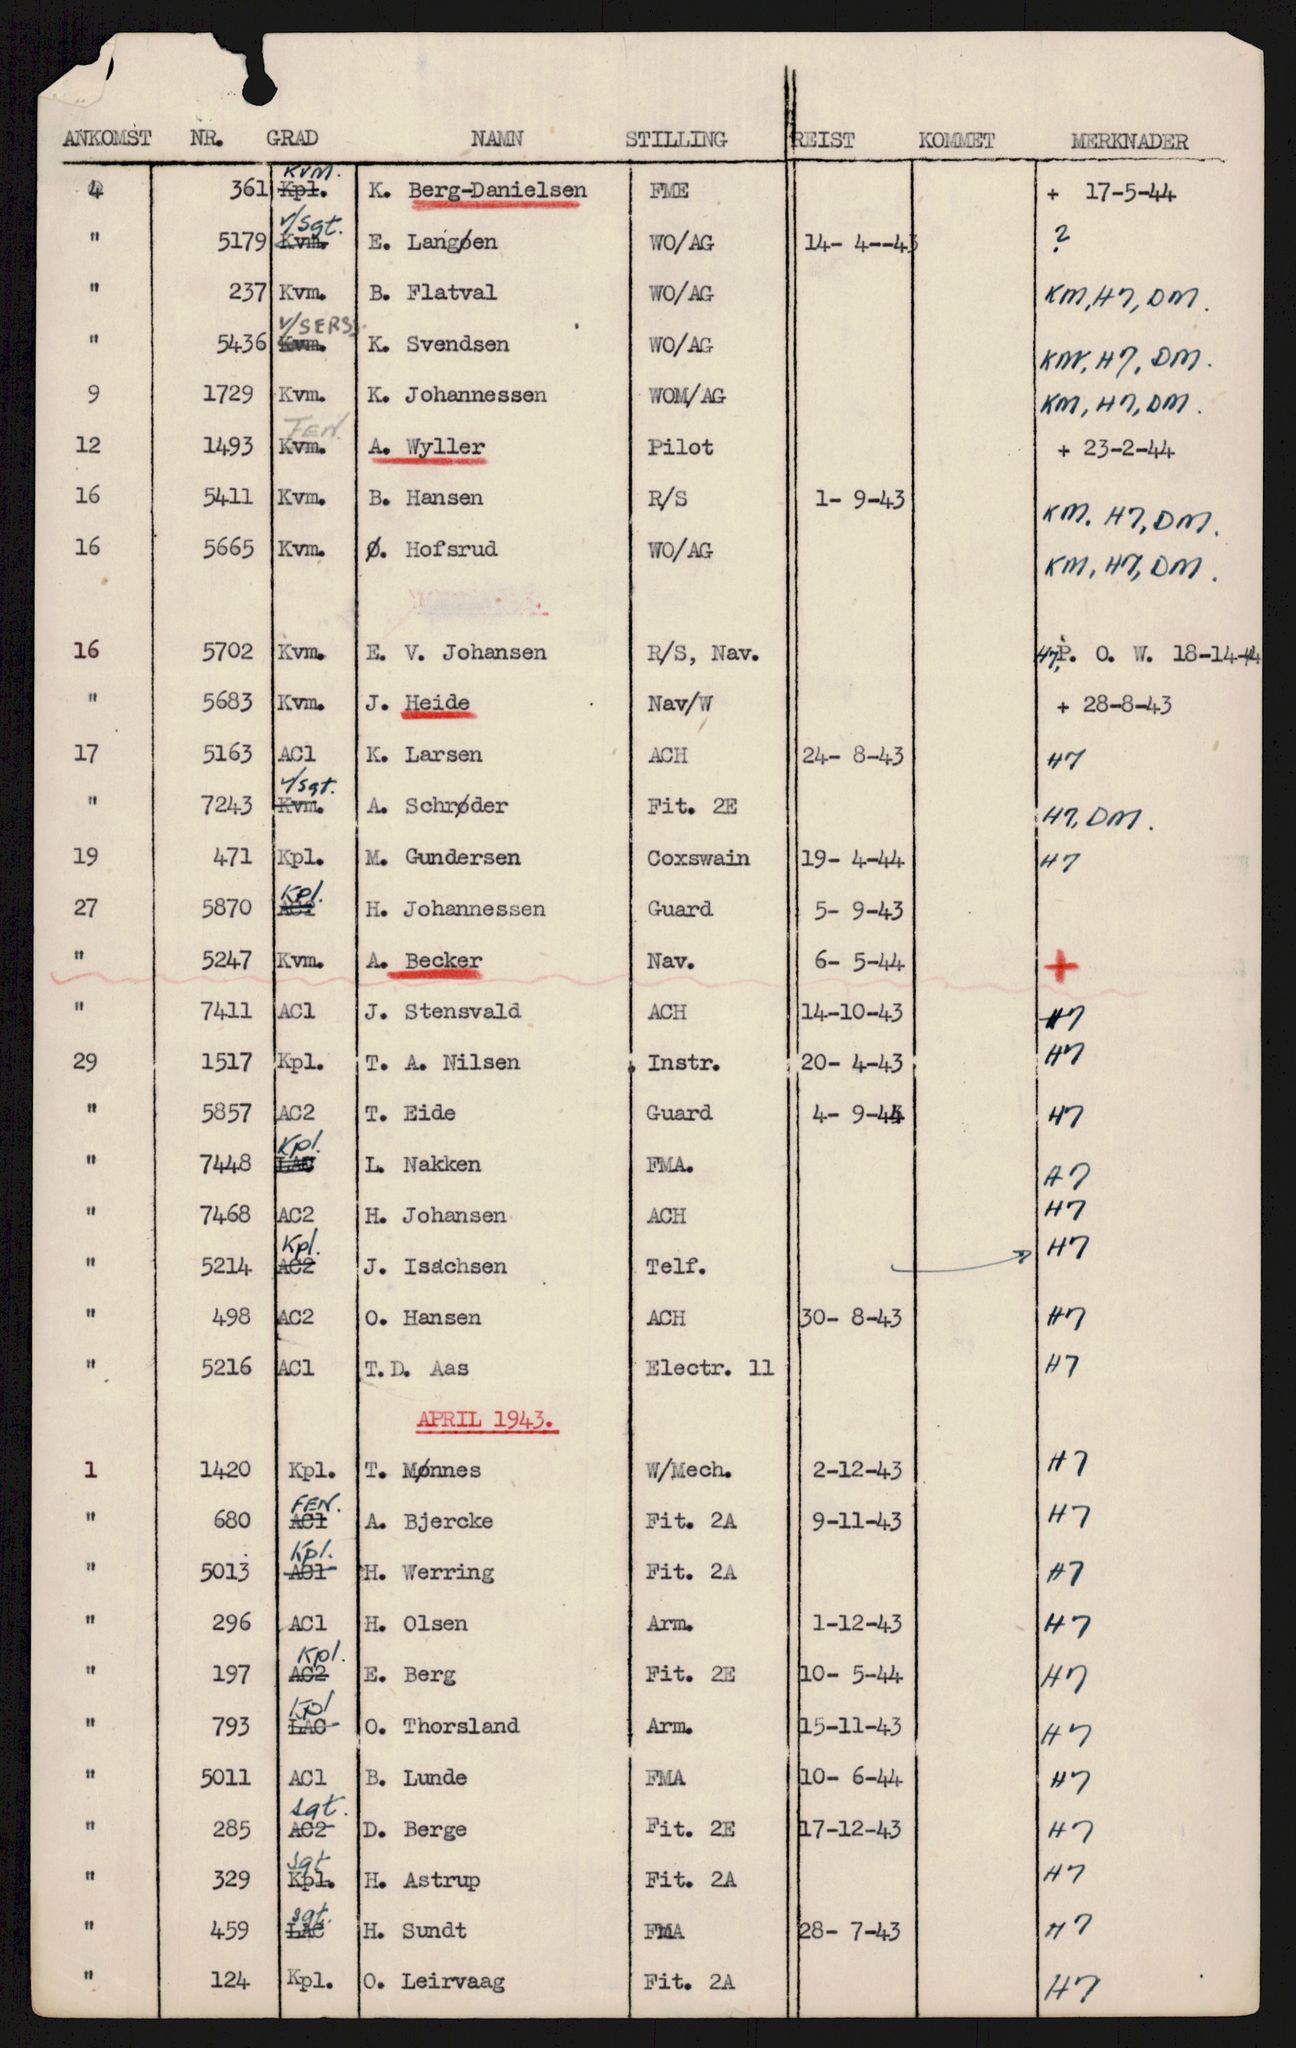 ANKOMST NR. GRAD NAMN STILLING REIST KOMMET MERKNADER
4 361 Kpl. Kvm. K. Berg-Danielsen FME + 17-5-44
" 5179 Kvm. v/Sgt. E. Langøen WO/AG 14- 4--43 ?
" 237 Kvm. B. Flatval WO/AG KM, H7, DM.
" 5436 Kvm. v/SERSJ. K. Svendsen WO/AG KM, H7, DM.
9 1729 Kvm. K. Johannessen WOM/AG KM, H7, DM.
12 1493 Kvm. FEN. A. Wyller Pilot + 23-2-44
16 5411 Kvm. B. Hansen R/S 1- 9-43 KM. H7, DM.
16 5665 Kvm. Ø. Hofsrud WO/AG KM, H7, DM.
16 5702 Kvm. E. V. Johansen R/S, Nav. H7, P. O. W. 18-14-44
" 5683 Kvm. J. Heide Nav/W + 28-8-43
17 5163 AC1 K. Larsen ACH 24- 8-43 H7
" 7243 Kvm. v/sgt. A. Schrøder Fit. 2E H7, DM.
19 471 Kpl. M. Gundersen Coxswain 19- 4-44 H7
27 5870 AC2 Kpl. H. Johannessen Guard 5- 9-43
" 5247 Kvm. A. Becker Nav. 6- 5-44 +
" 7411 AC1 J. Stensvald ACH 14-10-43 H7
29 1517 Kpl. T. A. Nilsen Instr. 20- 4-43 H7
" 5857 AC2 T. Eide Guard 4- 9-44 H7
" 7448 LAC Kpl. L. Nakken FMA. H7
" 7468 AC2 H. Johansen ACH H7
" 5214 AC2 Kpl. J. Isachsen Telf. H7
" 498 AC2 O. Hansen ACH 30- 8-43 H7
" 5216 AC1 T.D. Aas Electr. 11 H7
APRIL 1943.
1 1420 Kpl. T. Mønnes W/Mech. 2-12-43 H7
" 680 AC1 FEN. A. Bjercke Fit. 2A 9-11-43 H7
" 5013 AC1 Kpl. H. Werring Fit. 2A H7
" 296 AC1 H. Olsen Arm. 1-12-43 H7
" 197 AC2 Kpl. E. Berg Fit. 2E 10- 5-44 H7
" 793 LAC Kpl O. Thorsland Arm. 15-11-43 H7
" 5011 AC1 B. Lunde FMA 10- 6-44 H7
" 285 AC2 sgt. D. Berge Fit. 2E 17-12-43 H7
" 329 Kpl. sgt H. Astrup Fit. 2A H7
" 459 LAC sgt. H. Sundt FMA 28- 7-43 H7
" 124 Kpl. O. Leirvaag Fit. 2A H7